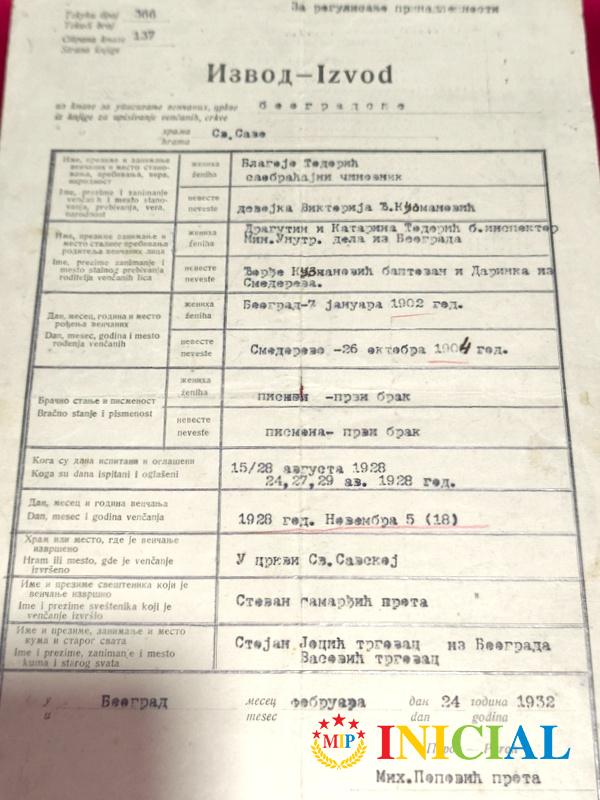 Текући број 366
Tekući broj
Страна књиге 137
Strana knjige
За регулисање принадлежности
Извод–Izvod
из књиге за уписивање венчаних, цркве београдске
iz knjige za upisivanje venčanih, crkve
храма Св.Саве
hrama
Име, презиме и занимање
венчаних и место стано-
вања, пребивања, вера,
народност
Ime, prezime i zanimanje
venčanih i mesto stanovanja,
prebivanja, vera,
narodnost
жениха
ženiha
Благоје Тодорић
саобраћајни чиновник
невесте
neveste
девојка Викторија Ђ.Кузмановић
Име, презиме занимање и
место сталног пребивања
родитеља венчаних лица
Ime, prezime, zanimanje i
mesto stalnog prebivanja
roditelja venčanih lica
жениха
ženiha
Драгутин и Катарина Тодорић б.инспектор
Мин.Унутр. дела из Београда
невесте
neveste
Ђорђе Кузмановић баштован и Даринка из
Смедерева.
Дан, месец, година и место
рођења венчаних
Dan, mesec, godina i mesto
rođenja venčanih
жениха
ženiha
Београд-7 јануара 1902 год.
невесте
neveste
Смедерево -26 октобра 1904 год.
Брачно стање и писменост
Bračno stanje i pismenost
жениха
ženiha
писмен -први брак
невесте
neveste
писмена- први брак
Кога су дана испитани и оглашени
Koga su dana ispitani i oglašeni
15/28 августа 1928
24,27,29 ав. 1928 год.
Дан, месец и година венчања
Dan, mesec i godina venčanja
1928 год. Новембра 5 (18)
Храм или место, где је венчање
извршено
Hram ili mesto, gde je venčanje
izvršeno
У цркви Св.Савској
Име и презиме свештеника који је
венчање извршио
Ime i prezime sveštenika koji je
venčanje izvršio
Стеван Самарџић прота
Име и презиме, занимање и место
кума и старог свата
Ime i prezime, zanimanje i mesto
kuma i starog svata
Стојан Јоцић трговац из Београда
Васовић трговац
у Београд месец фебруара дан 24 година 1932
u mesec dan godina
MIP
INICIAL
Мих.Поповић прота